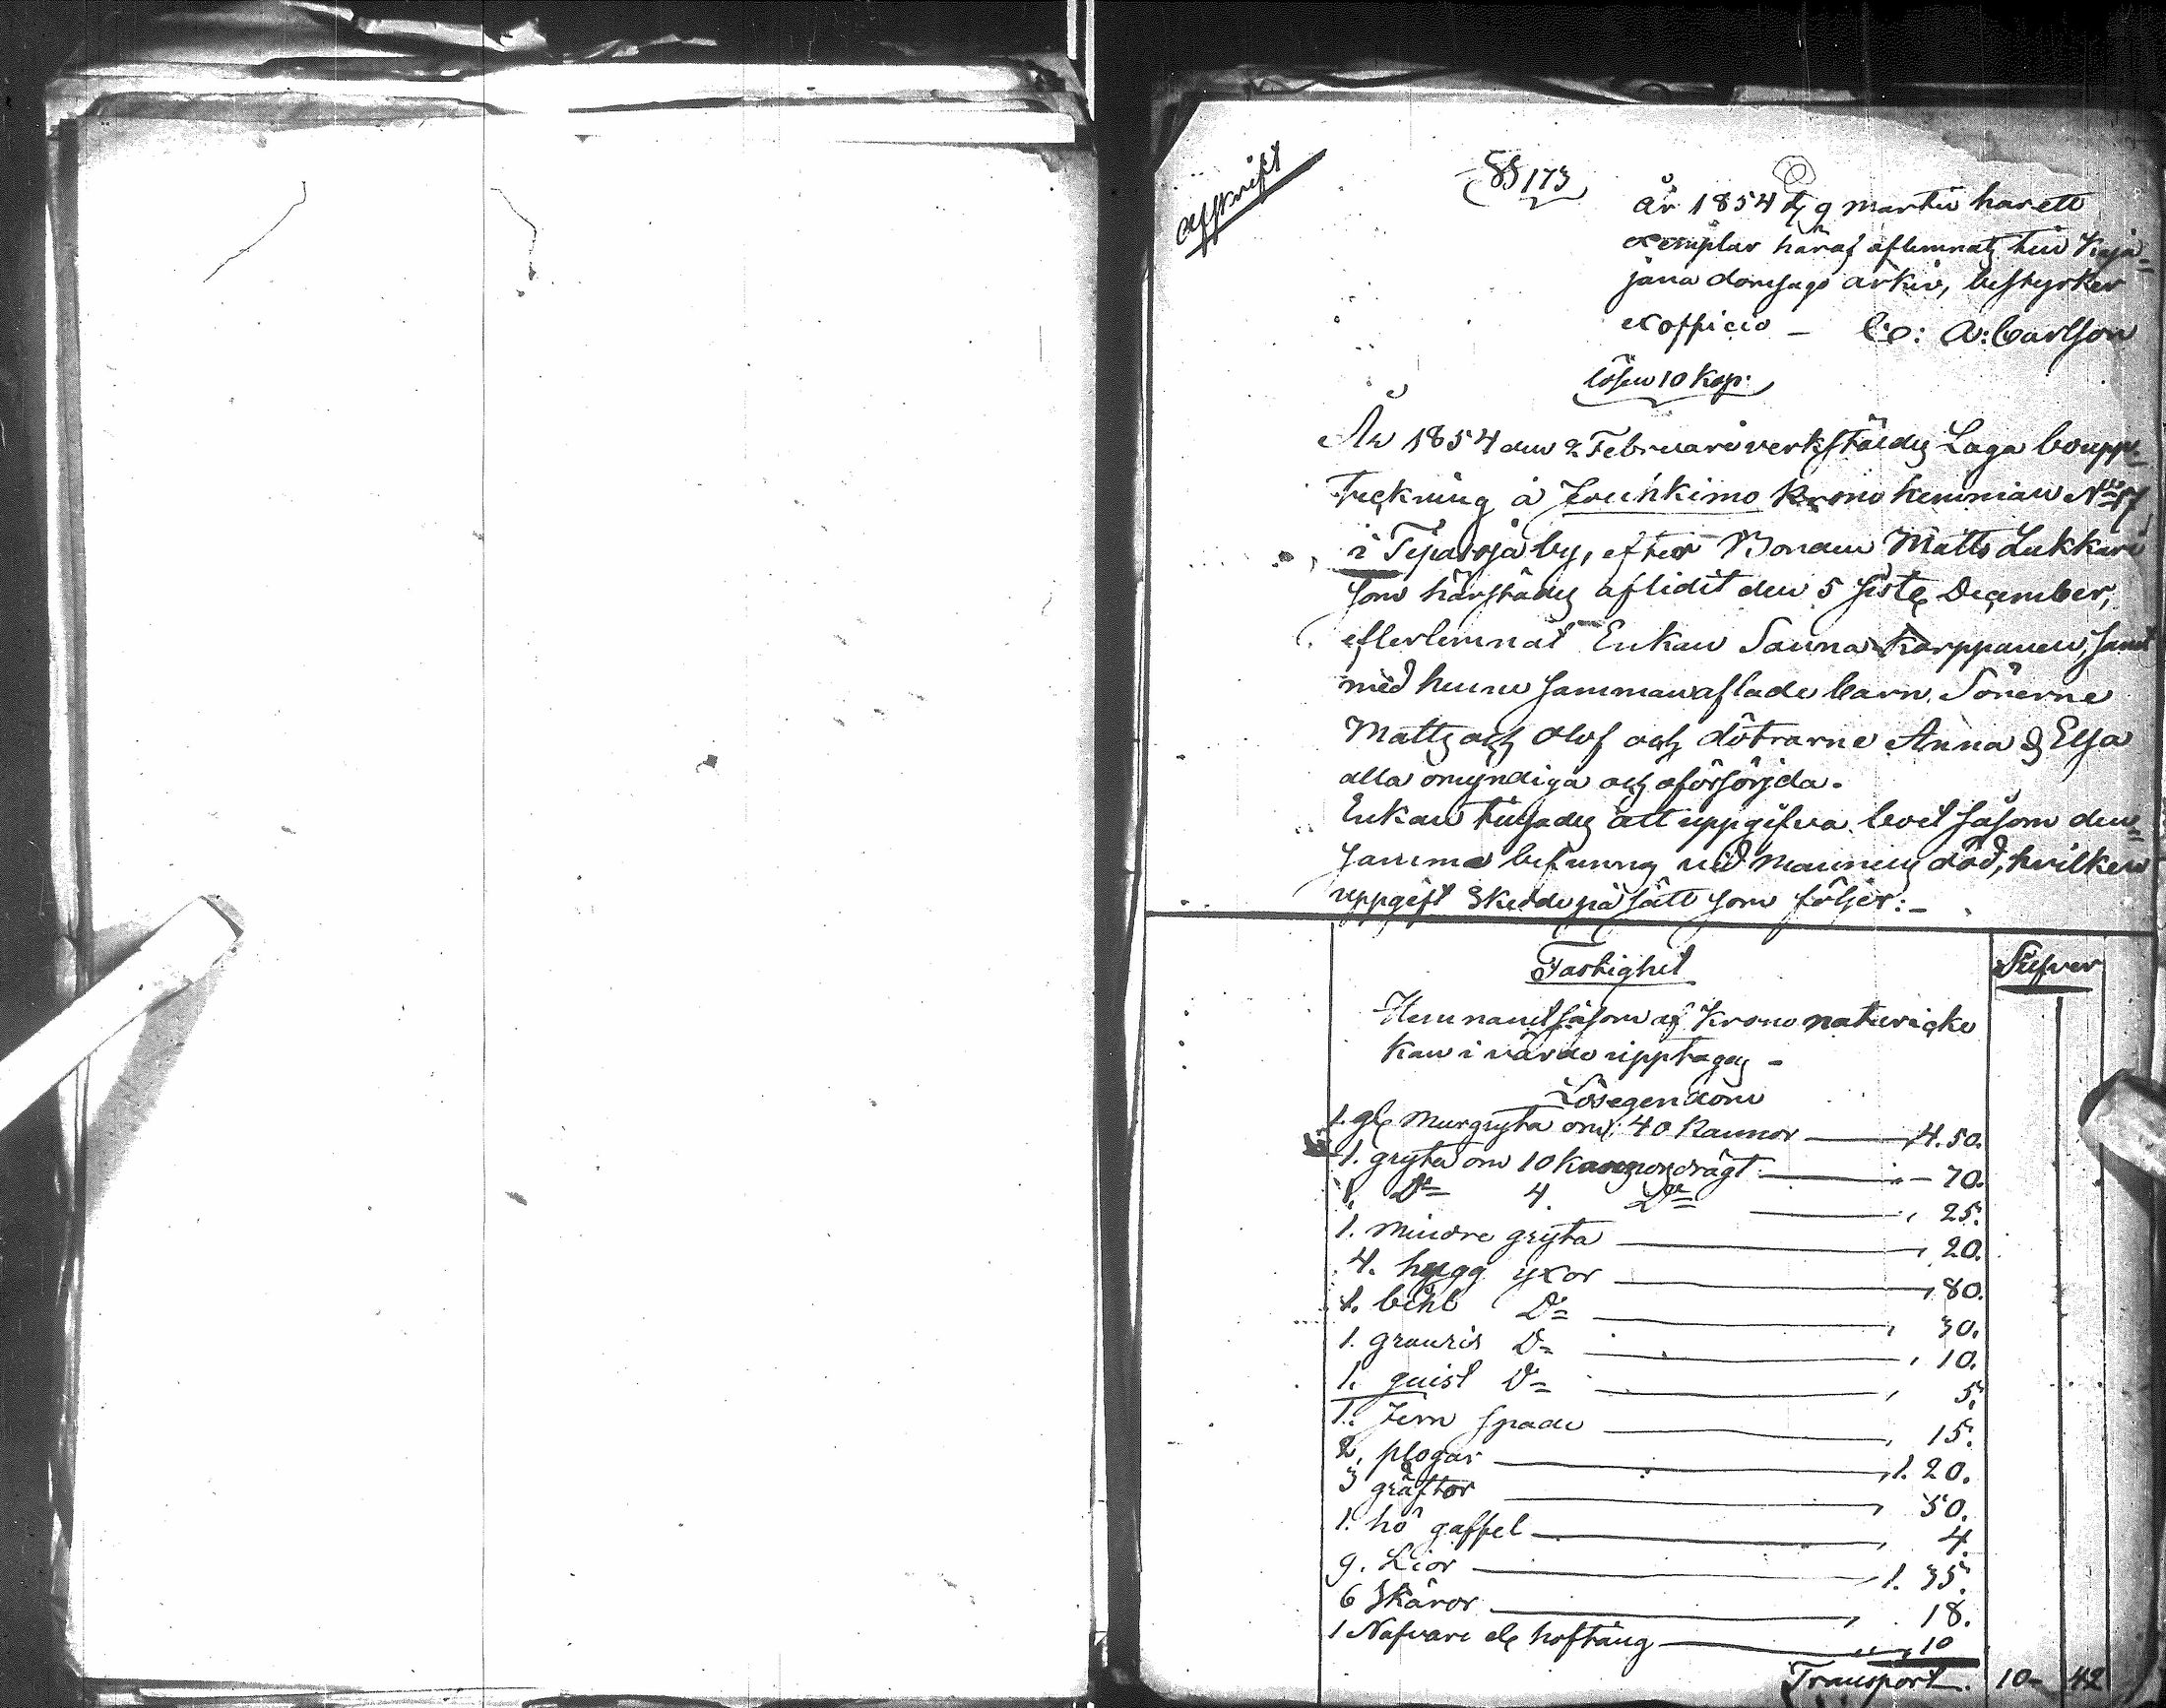 Afskrift
§§ 173
År 1854 d. 9 martii har ett
exemplar häraf aflemnats till Kaja=
jana domsago arkiv, bestyrker
ex officio – C: A: Carlson
lösen 10 kop.
År 1854 den 2 Februari verkstäldes Laga boupp=
teckning å Jouhkimo Krono hemman No 57
i Tipasoja by, efter Bonden Matts Lukkari
som härstädes aflidit den 5 siste December,
efterlemnat Enkan Sanna Karppanen, samt
med henne sammanaflade barn. Sönerne
Matts och Olof och döttrarne Anna & Elsa
alla omyndiga och oförsörjda.
Enkan tillsades att uppgifva boet såsom den=
samma befunnits vid mannens död, hvilken
uppgift skedde på sätt som följer:–
Fastighet
Silfver
Hemmanet såsom af Krono natur icke
kan i värde upptagas –
Lösegendom
1. gl. Murgryta om 40 Kannor 4. 50.
1. gryta om 10 Kannors drägt " – 70.
1. Do 4. Do " 25.
1. mindre gryta " 20.
4. hugg yxor " 80.
1. bihl Do " 30.
1. Do " 10.
1. Do " 5.
1. Jern spade " 15.
2. plogar 1. 20.
3 gräftor " 50.
1. hö gaffel " 4.
9. Lior 1. 35.
6 Skäror " 18.
1 Nafvare el. hoftång " " 10
Transport. 10 – 42